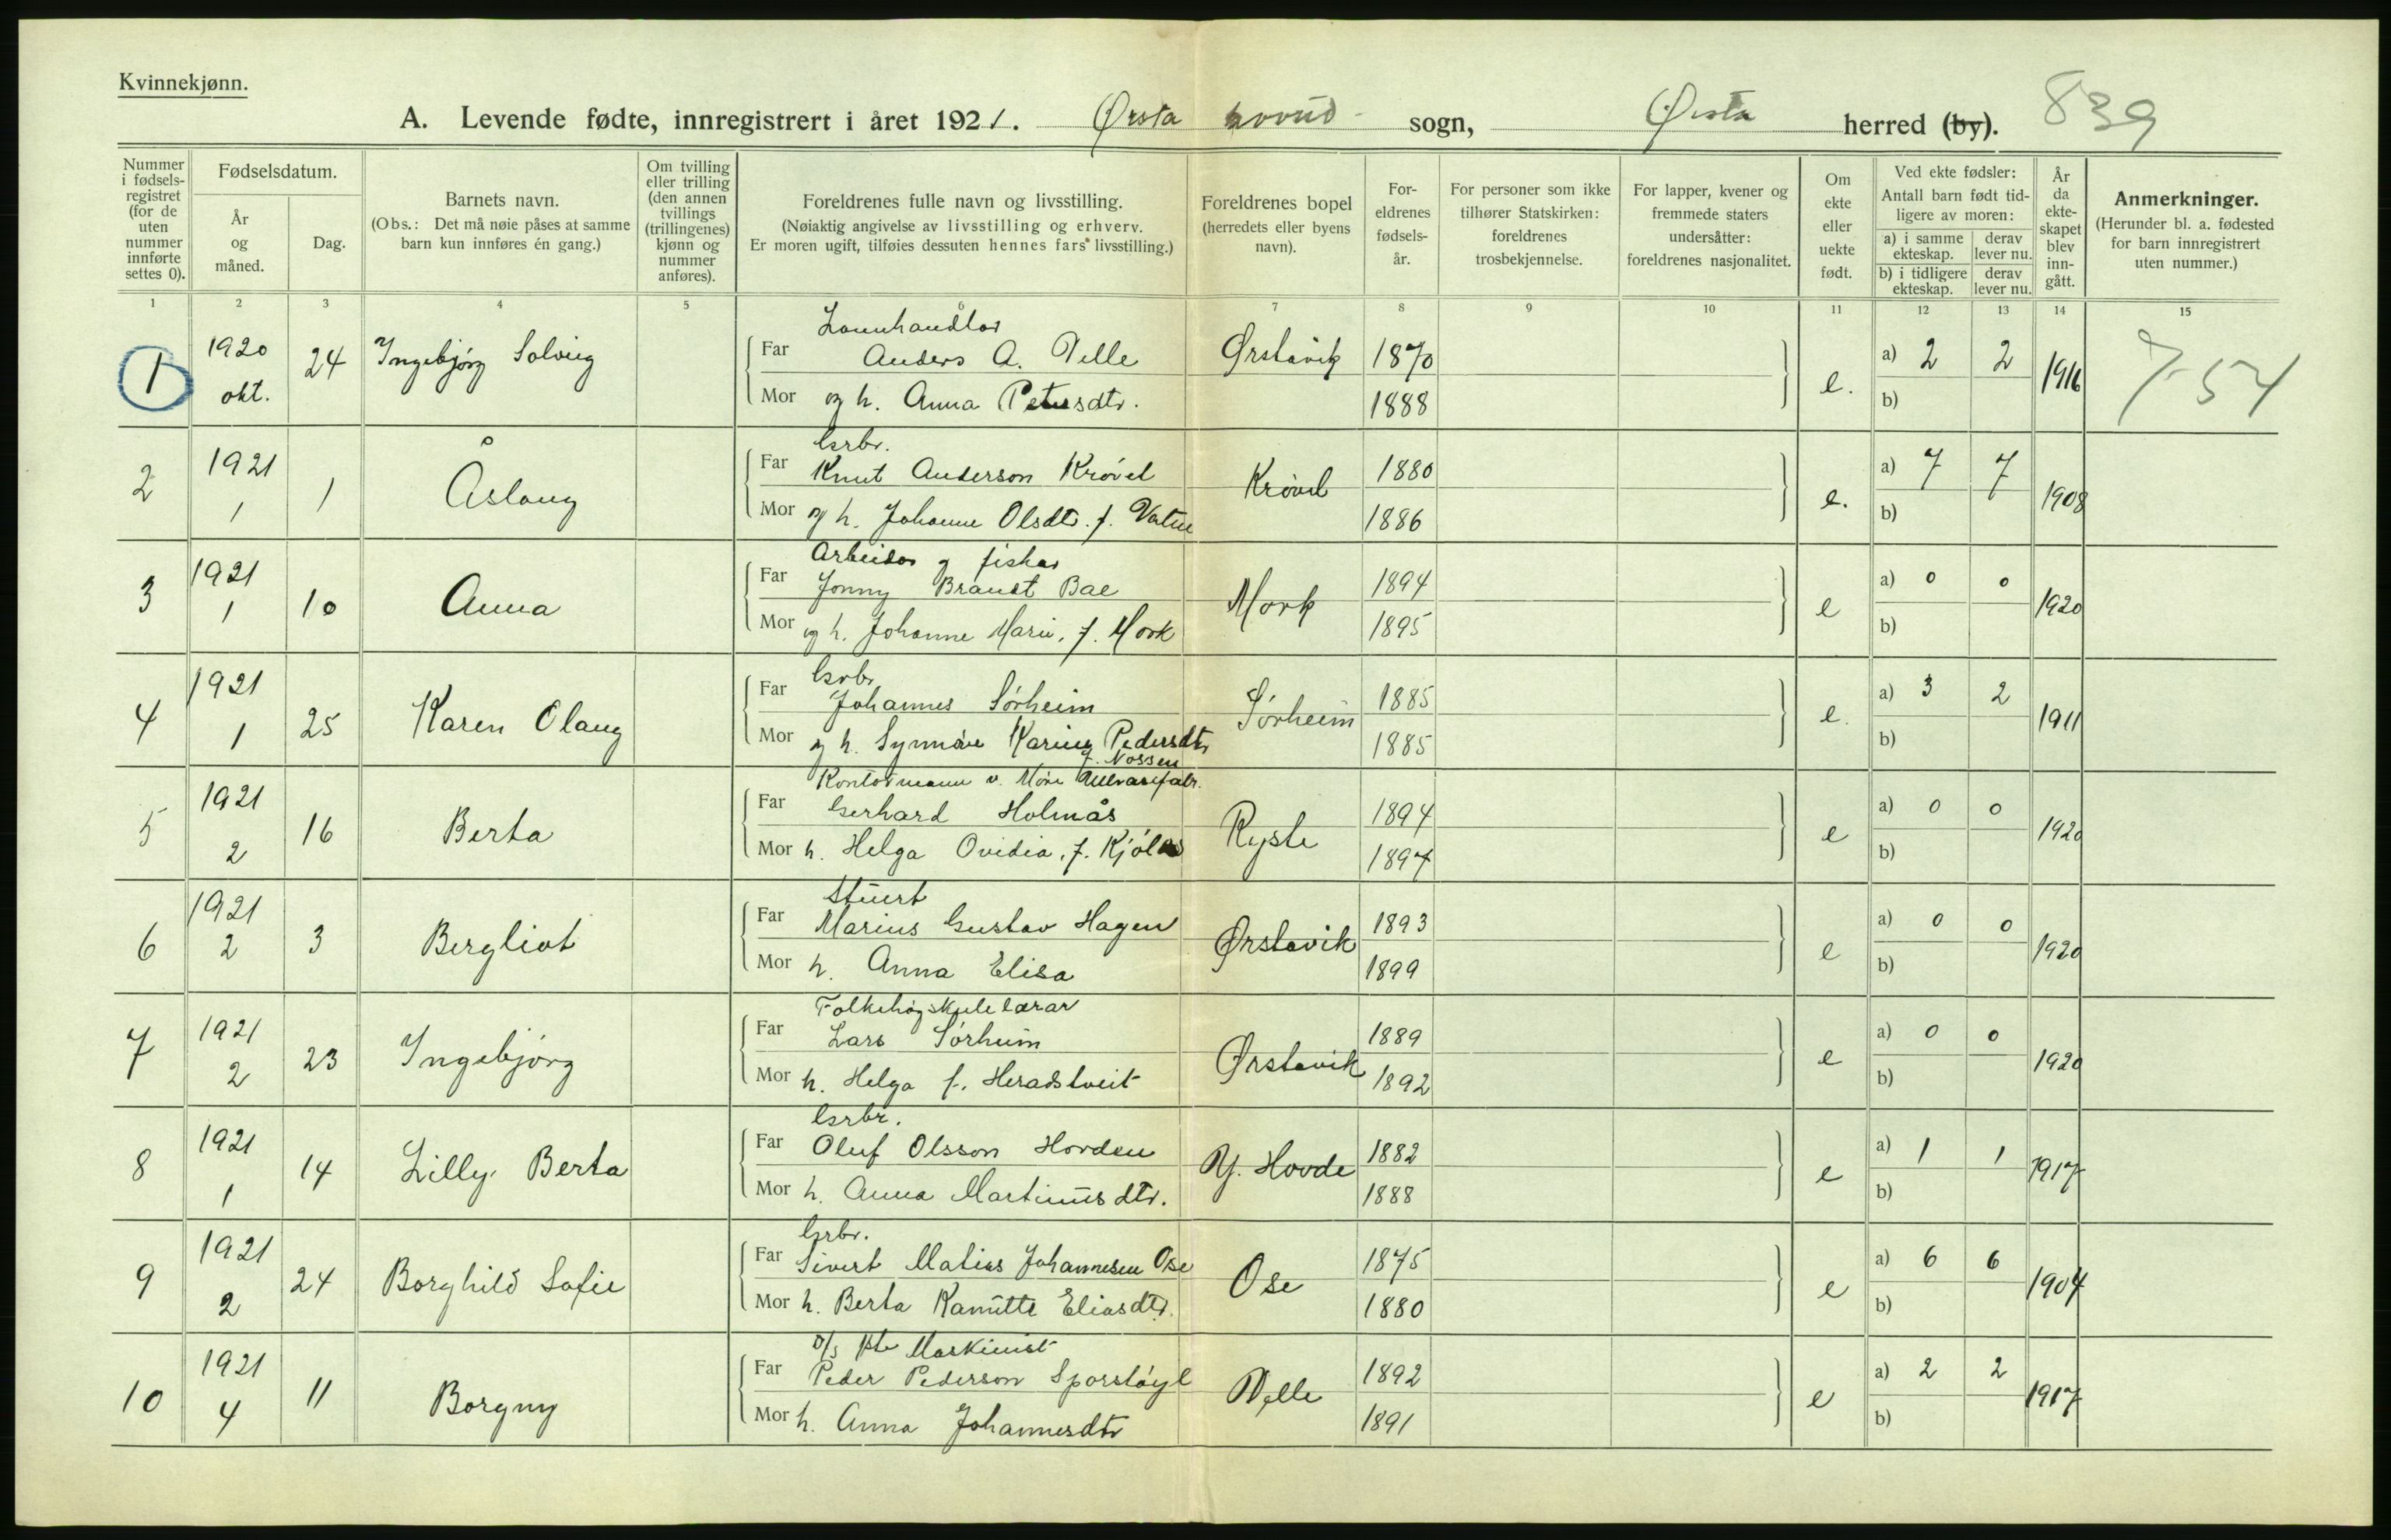 Kvinnekjønn.
A. Levende fødte, innregistrert i året 1921. Ørsta hovud- sogn, Ørsta herred (by). 839
Nummer i fødsels-registret (for de uten nummer innførte settes 0).
Fødselsdatum.
År og måned.
Dag.
Barnets navn.
(Obs.: Det må nøie påses at samme barn kun innføres én gang.)
Om tvilling eller trilling (den annen tvillings (trillingenes) kjønn og nummer anføres).
Foreldrenes fulle navn og livsstilling.
(Nøiaktig angivelse av livsstilling og erhverv.
Er moren ugift, tilføies dessuten hennes fars livsstilling.)
Foreldrenes bopel (herredets eller byens navn).
For-eldrenes fødsels-år.
For personer som ikke tilhører Statskirken: foreldrenes trosbekjennelse.
For lapper, kvener og fremmede staters undersåtter: foreldrenes nasjonalitet.
Om ekte eller uekte født.
Ved ekte fødsler:
Antall barn født tid-ligere av moren:
a) i samme ekteskap. derav lever nu.
b) i tidligere ekteskap. derav lever nu.
År da ekte-skapet blev inn-gått.
Anmerkninger.
(Herunder bl. a. fødested for barn innregistrert uten nummer.)
1 2 3 4 5 6 7 8 9 10 11 12 13 14 15
Landhandlar
1 1920 okt. 24 Ingebjørg Solveig Far Anders A. Velle Ørstavik 1870 e. a) 2 2 1916 7-54
Mor og h. Anna Petersdtr. 1888 b)
Gsrbr.
2 1921 1 1 Åslaug Far Knut Anderson Krøvel Krøvel 1880 e. a) 7 7 1908
Mor og h. Johanne Olsdtr. f. Vatne 1886 b)
Arbeidar og fiskar
3 1921 1 10 Anna Far Jonny Brandt Bae Mork 1894 e a) 0 0 1920
Mor og h. Johanne Marie, f. Mork 1895 b)
Gsrbr.
4 1921 1 25 Karen Olaug Far Johannes Sørheim Sørheim 1885 e. a) 3 2 1911
Mor og h. Synnøve Karine Pedersdtr f. Nossen 1885 b)
Kontormann v. Møre Ullvarefabr.
5 1921 2 16 Berta Far Gerhard Holmås Ryste 1894 e a) 0 0 1920
Mor h. Helga Ovidia, f. Kjølås 1897 b)
Stuert
6 1921 2 3 Bergliot Far Marius Gustav Hagen Ørstavik 1893 e a) 0 0 1920
Mor h. Anna Elisa 1899 b)
Folkehøgskulelærar
7 1921 2 23 Ingebjørg Far Lars Sørheim Ørstavik 1889 e a) 0 0 1920
Mor h. Helga f. Heradstveit 1892 b)
Gsrbr.
8 1921 1 14 Lilly Berta Far Oluf Olsson Hovden Y. Hovde 1882 e a) 1 1 1917
Mor h. Anna Martinusdtr. 1888 b)
Gsrbr.
9 1921 2 24 Borghild Sofie Far Sivert Matias Johannesen Ose Ose 1875 e a) 6 6 1904
Mor h. Berta Kamitte Eliasdtr. 1880 b)
Maskinist
10 1921 4 11 Borgny Far Peder Pederson Sporstøyl Velle 1892 e a) 2 2 1917
Mor h. Anna Johannesdtr 1891 b)